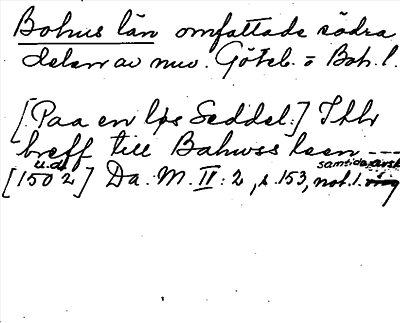 Bohus län omfattade södra
delen av nuv. Göteb. o Boh. l.
[Paa en løs Seddel.] Thr
breff till Bahwss leen ---
u.d. samtida
[1502] Da. M. II: 2, s. 153, not. 1.